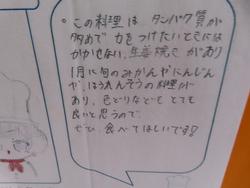 ・この料理は タンパク質が
多めで 力をつけたいときには
かかせない、生姜焼きがあり
1月に旬のみかんやにんじん
や、ほうれんそうの料理が
あり、色どりなども とても
良いと思うので、
ぜひ、食べてほしいです!